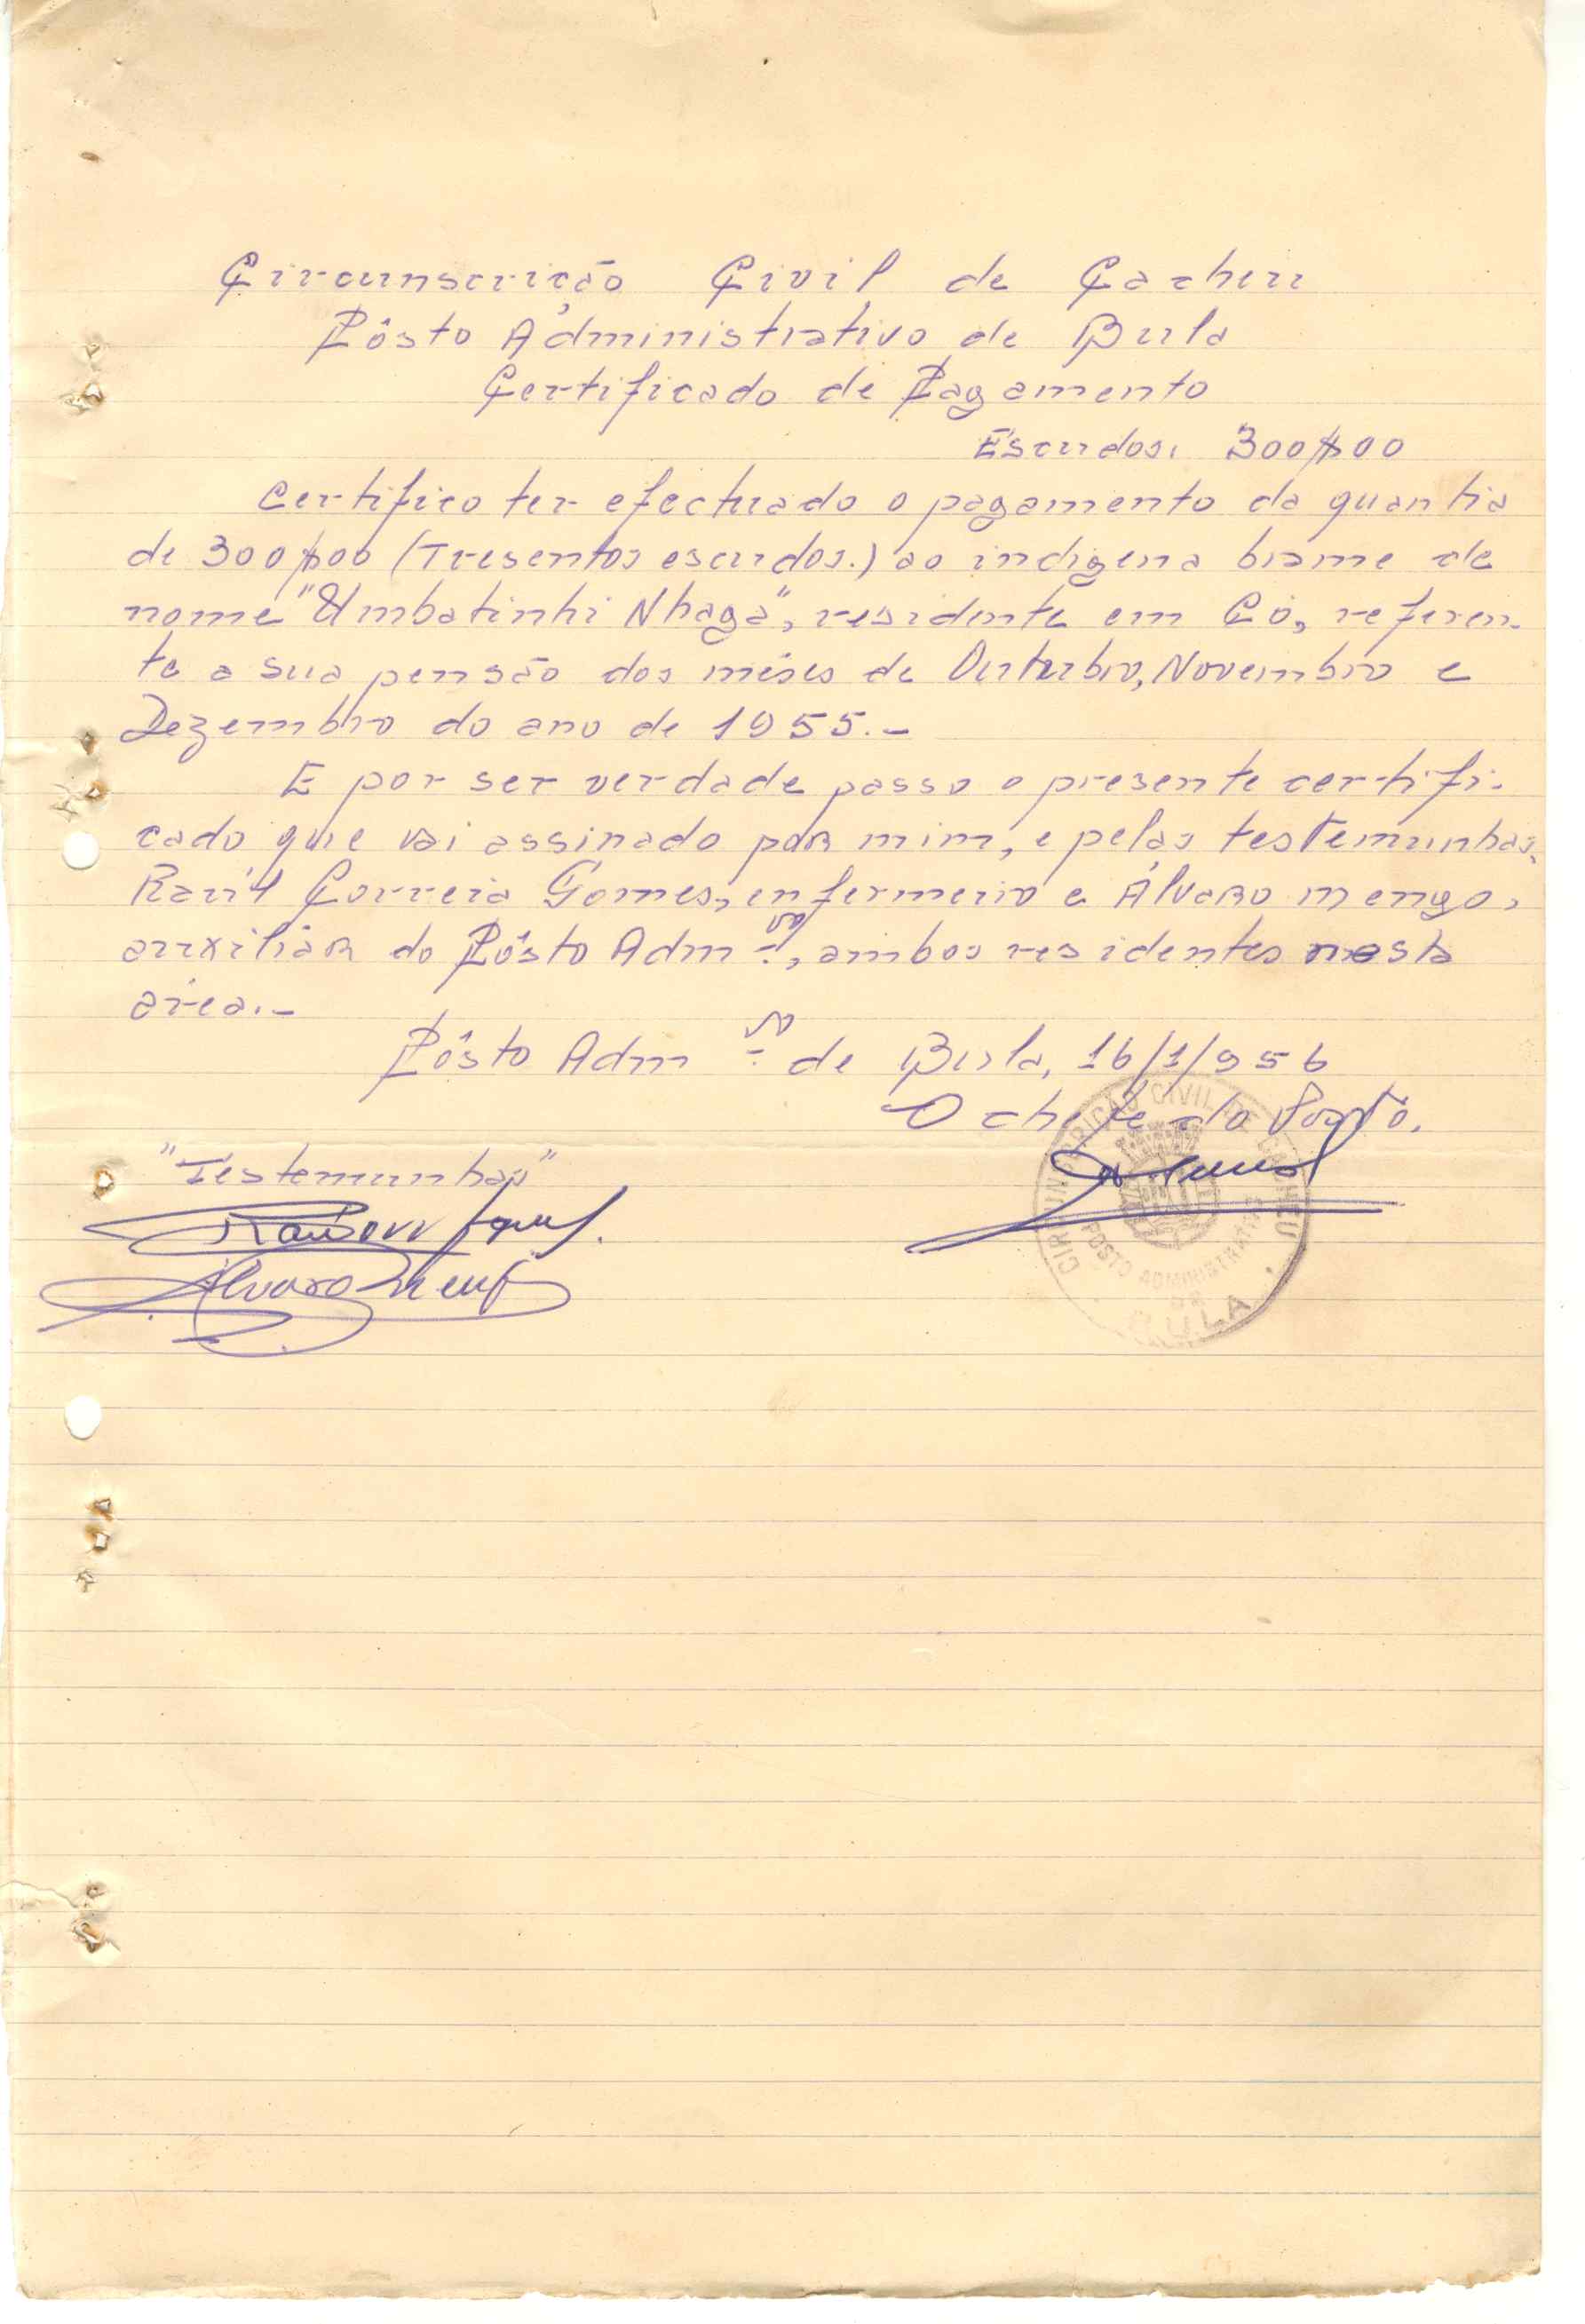 Circunscrição Civil de Cacheu
Pôsto Administrativo de Bula
Certificado de Pagamento
Escudos. 300$00
Certifico ter efectuado o pagamento da quantia
de 300$00 (Tresentos escudos.) ao indigena brame de
nome "Umbatinhi Nhaga", residente em Có, referen-
te a sua pensão dos mêses de Outubro, Novembro e
Dezembro do ano de 1955.-
E por ser verdade passo o presente certifi-
cado que vai assinado por mim, e pelas testemunhas,
Raúl Correia Gomes, enfermeiro e Álvaro Mengo,
auxiliar do Pôsto Admvo, ambos residentes nesta
área.-
Pôsto Admvo de Bula, 16/1/956
O chefe do Posto.
CIRCUNSCRIÇÃO CIVIL DE CACHEU
POSTO ADMINISTRATIVO
DE
BULA
"Testemunhas"
Álvaro